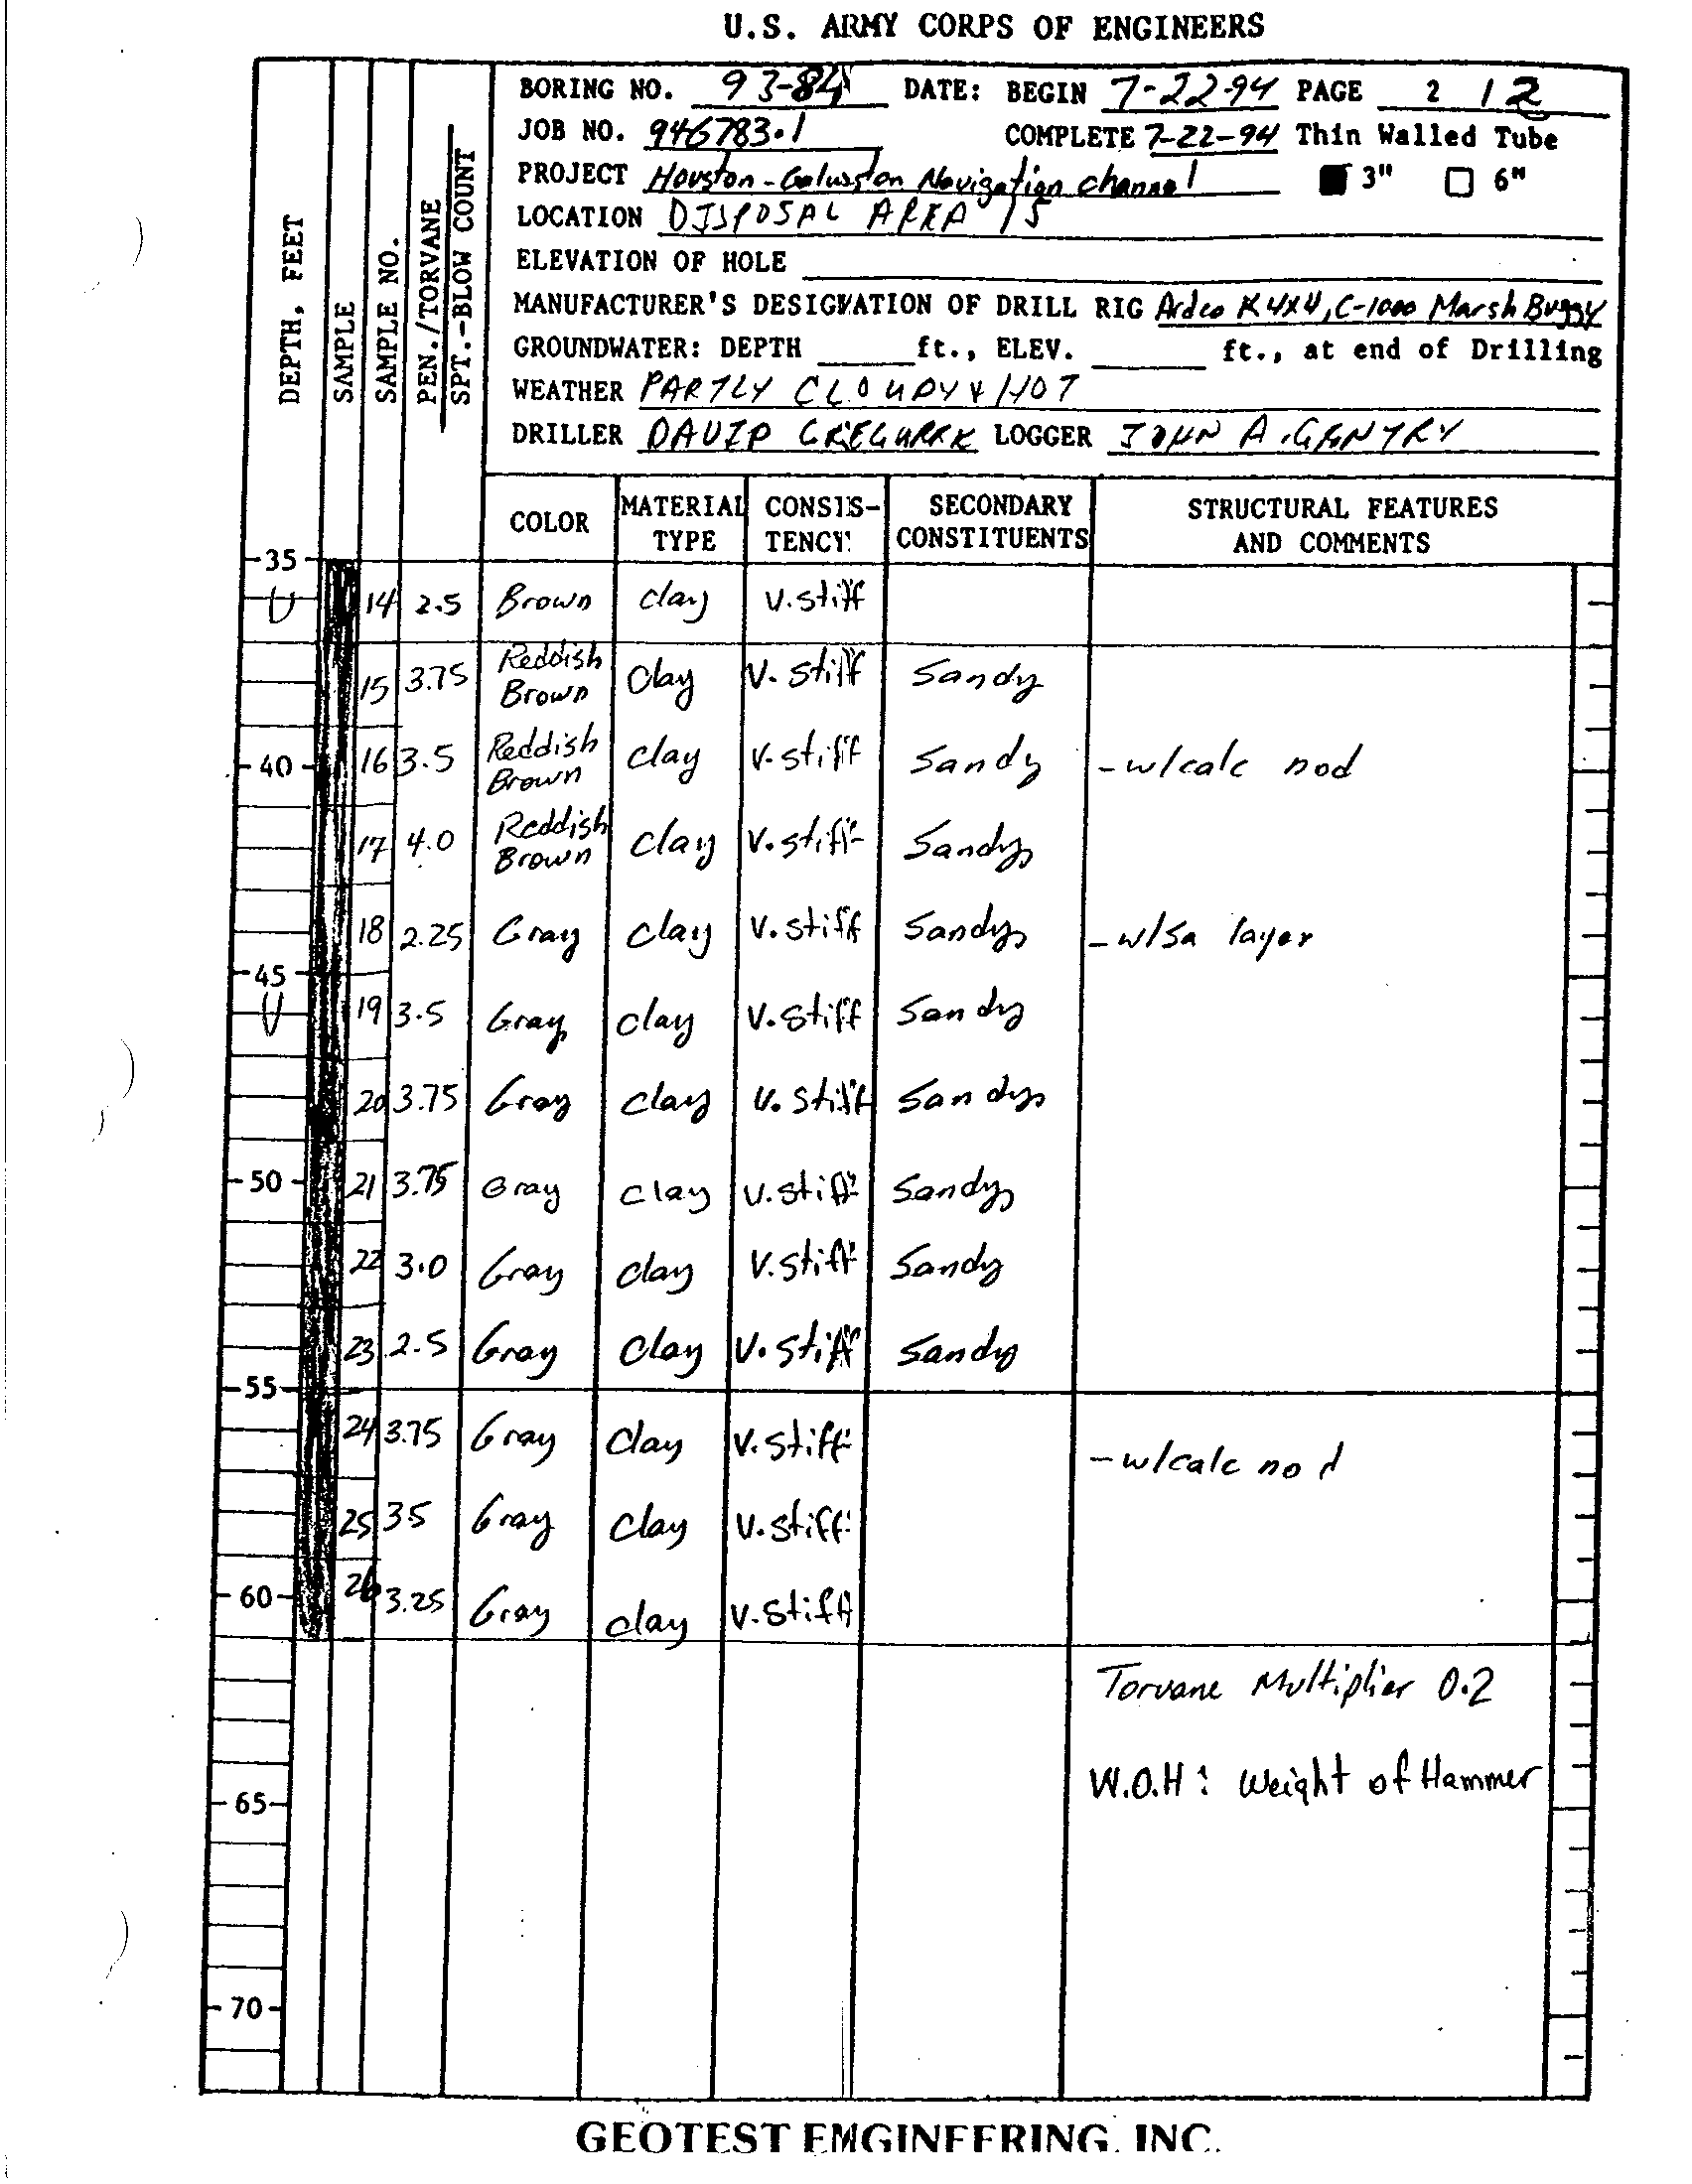 U.S. ARMY CORPS OF ENGINEERS
BORING NO. 93-84 DATE: BEGIN 7-22-94 PAGE 2 / 2
JOB NO. 946783.1 COMPLETE 7-22-94 Thin Walled Tube
PROJECT Houston-Galveston Navigation channel 3" 6"
LOCATION DISPOSAL AREA 15
ELEVATION OF HOLE
MANUFACTURER'S DESIGNATION OF DRILL RIG Ardco K 4X4, C-1000 Marsh Buggy
GROUNDWATER: DEPTH ft., ELEV. ft., at end of Drilling
WEATHER PARTLY CLOUDY & HOT
DRILLER DAVID LOGGER JOHN A. GENTRY
DEPTH, FEET
SAMPLE
SAMPLE NO.
PEN./TORVANE
SPT.-BLOW COUNT
COLOR MATERIAL TYPE CONSIS-TENCY SECONDARY CONSTITUENTS STRUCTURAL FEATURES AND COMMENTS
35
U 14 2.5 Brown clay v.stiff
15 3.75 Reddish Brown Clay v.stiff Sandy
40 16 3.5 Reddish Brown clay v.stiff Sandy -w/calc nod
17 4.0 Reddish Brown clay v.stiff Sandy
18 2.25 Gray clay v.stiff Sandy -w/sa layer
45
U 19 3.5 Gray clay v.stiff Sandy
20 3.75 Gray clay v.stiff Sandy
50 21 3.75 Gray clay v.stiff Sandy
22 3.0 Gray clay v.stiff Sandy
23 2.5 Gray Clay v.stiff Sandy
55
24 3.75 Gray Clay v.stiff -w/calc nod
25 35 Gray Clay v.stiff
60 26 3.25 Gray clay v.stiff
Torvane Multiplier 0.2
65 W.O.H: Weight of Hammer
70
GEOTEST ENGINEERING, INC.